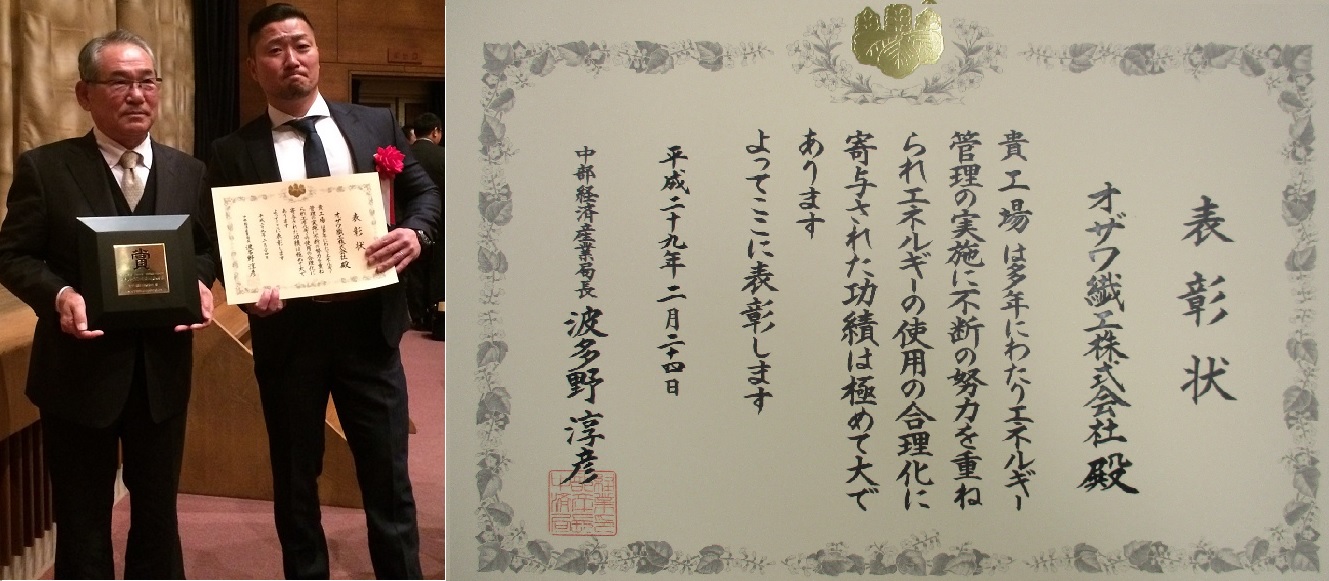 表彰状
オザワ繊工株式会社 殿
貴工場は多年にわたりエネルギー
管理の実施に不断の努力を重ね
られエネルギーの使用の合理化に
寄与された功績は極めて大で
あります
よってここに表彰します
平成二十九年二月二十四日
中部経済産業局長 波多野 淳彦
賞
表彰状
オザワ繊工株式会社 殿